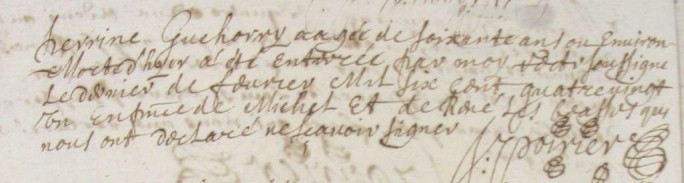 perrine Guehorry aagée de soixante ans ou Environ
Morte d'hyer a été enterrée par moy rectr soussigne
Le dernier de feuvrier Mil six cent quatre vingt
un En pnce de Michel Et de René Les qui
nous ont declaré ne sçavoir signer
poirier